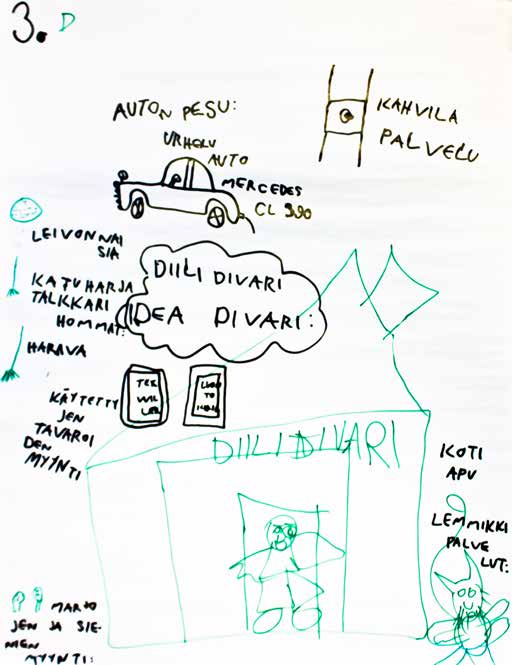 3. D
AUTON PESU:
URHEILU
AUTO
MERCEDES
CL 990
KAHVILA
PALVELU
LEIVONNAI
SIA
KATUHARJA
TALKKARI
HOMMAT:
HARAVA
DIILI DIVARI
IDEA DIVARI:
KÄYTETTY
JEN
TAVAROI
DEN
MYYNTI
TEX
WIL
LER
DIILI DIVARI
KOTI
APU
LEMMIKKI
PALVE
LUT:
MARJO
JEN JA SIE-
MEN
MYYNTI: